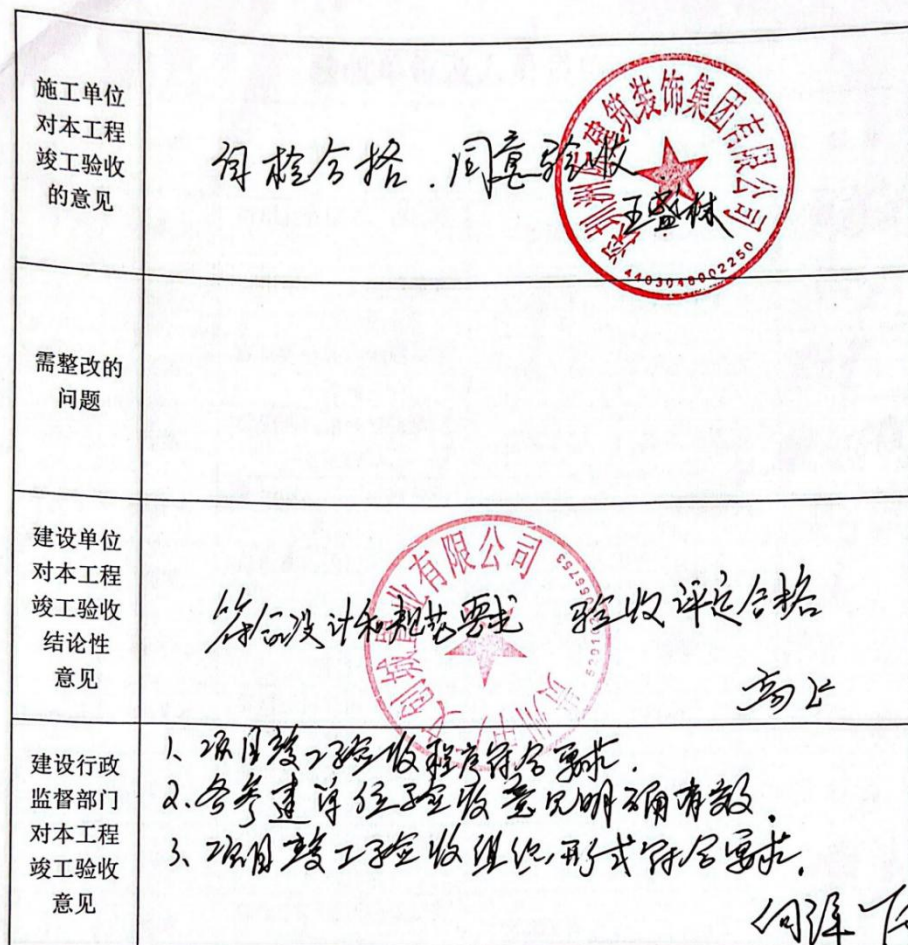 施工单位
对本工程
竣工验收
的意见
自检合格.同意验收
王盛林
建筑装饰集团有限公司
4403040002250
需整改的
问题
建设单位
对本工程
竣工验收
结论性
意见
符合设计和规范要求 验收评定合格
创城置业有限公司
贵州
建设行政
监督部门
对本工程
竣工验收
意见
1、项目竣工验收程序符合要求.
2、各参建单位验收意见明确有效.
3、项目竣工验收组织形式符合要求.